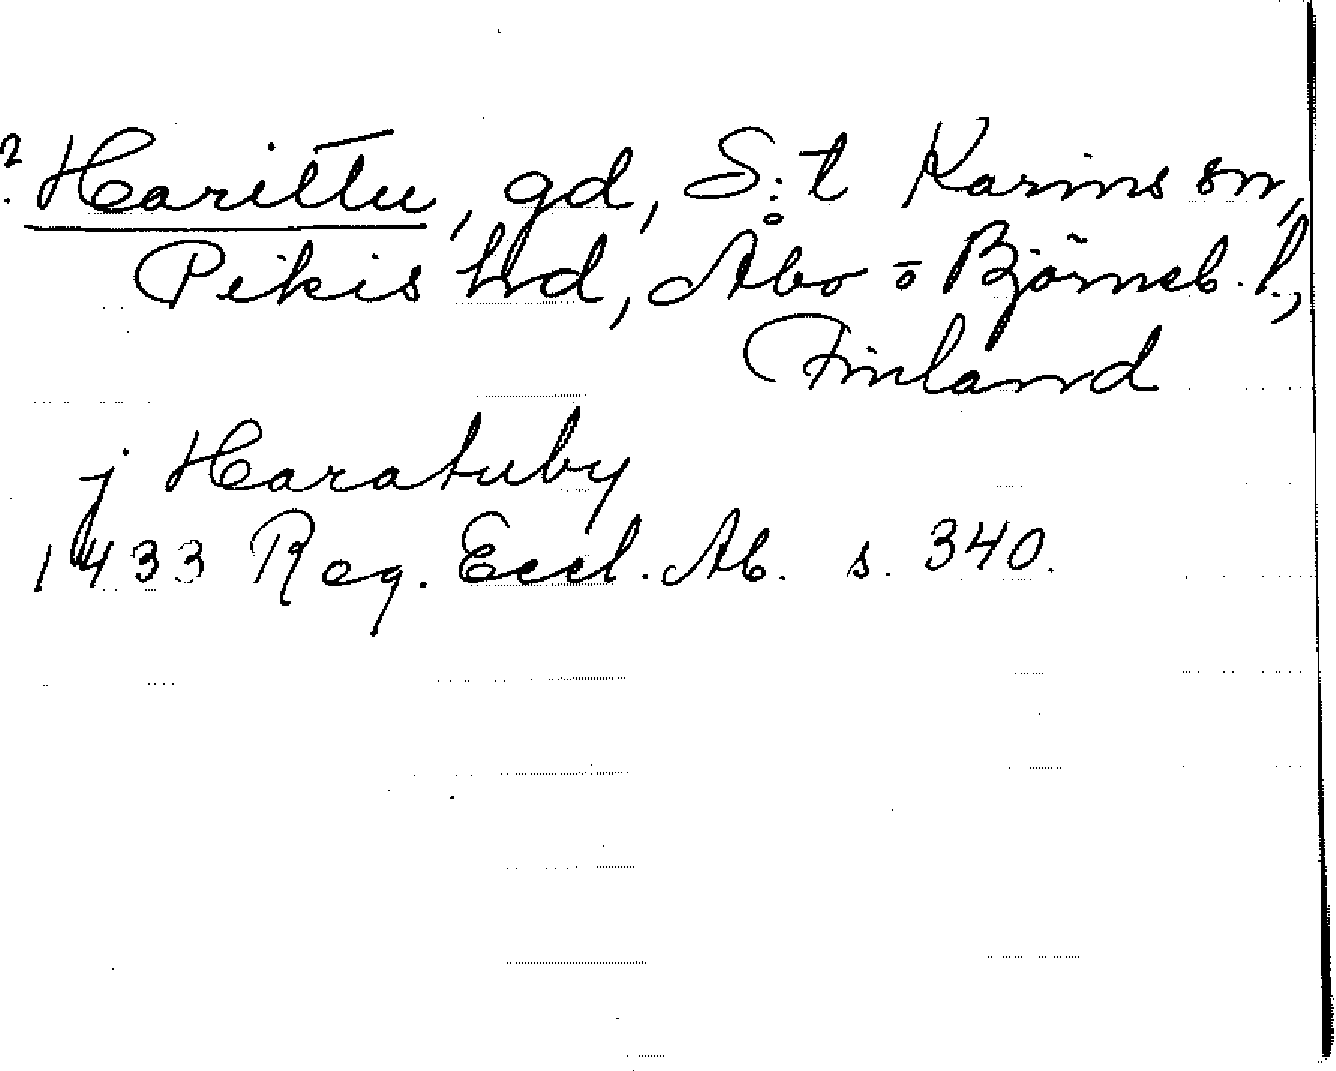 ? Harittu, gd, S:t Karins sn,
Pikis hd, Åbo o Björneb. l.,
Finland
j Haratuby
1433 Reg. Eccl. Ab. s. 340.